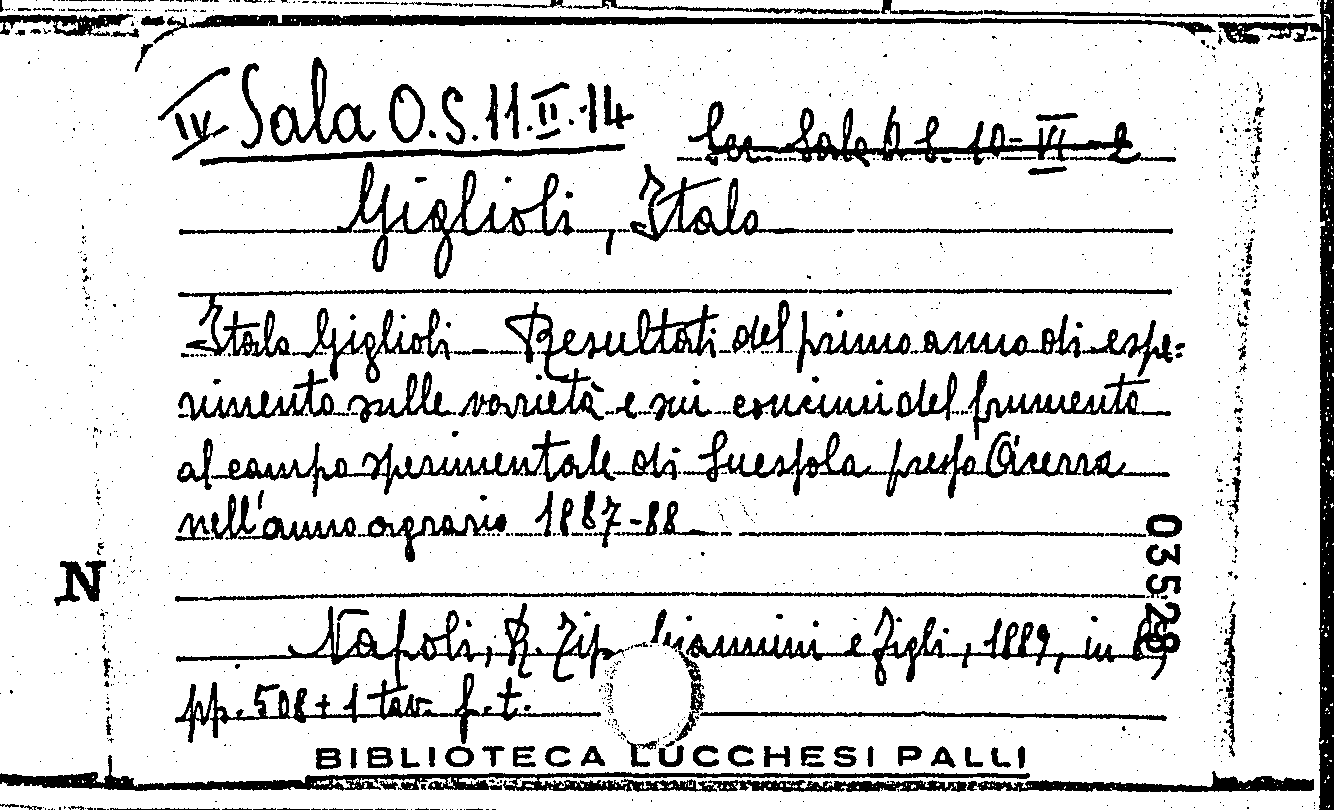 IV Sala O.S. 11.II.14
Sec. Sala O S. 10-VI-2
Giglioli, Italo
Italo Giglioli - Resultati del primo anno di espe=
rimento sulle varietà e sui concimi del frumento
al campo sperimentale di Suessola presso Acerra
nell'anno agrario 1887-88
N
Napoli, R. Tip. Giannini e Figli, 1889, in 8°,
pp. 508 + 1 tav. f. t.
03528
BIBLIOTECA LUCCHESI PALLI